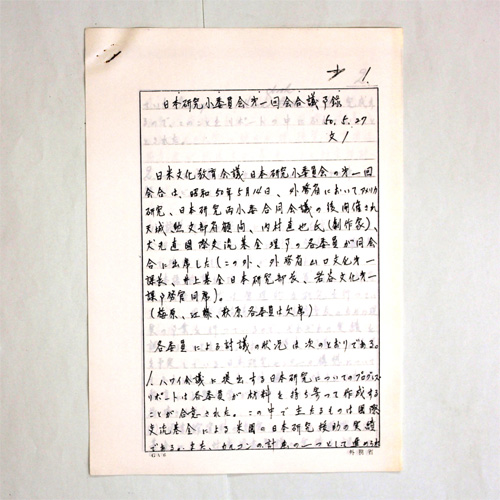 1.
日本研究小委員会第一回会合議事録
50. 5. 27
文1
日米文化教育会議日本研究小委員会の第一回
会合は、昭和50年5月14日、外務省においてアメリカ
研究、日本研究両小委合同会議の後開催され
天城勲文部省顧問、内村直也氏(劇作家)、
犬丸直国際交流基金理事の各委員が同会
合に出席した(この外、外務省山口文化第一
課長、井上基金日本研究部長、若谷文化第一
課事務官同席)。
(梅原、近藤、萩原各委員は欠席)
各委員による討議の状況は次のとおりである。
1. ハワイ会議に提出する日本研究についてのプログレス・
リポートは各委員が材料を持ち寄って作成する
ことが合意された。この中で主たるものは国際
交流基金による米国の日本研究援助の実績
である。また、カルコンの計画の一つとして
外務省